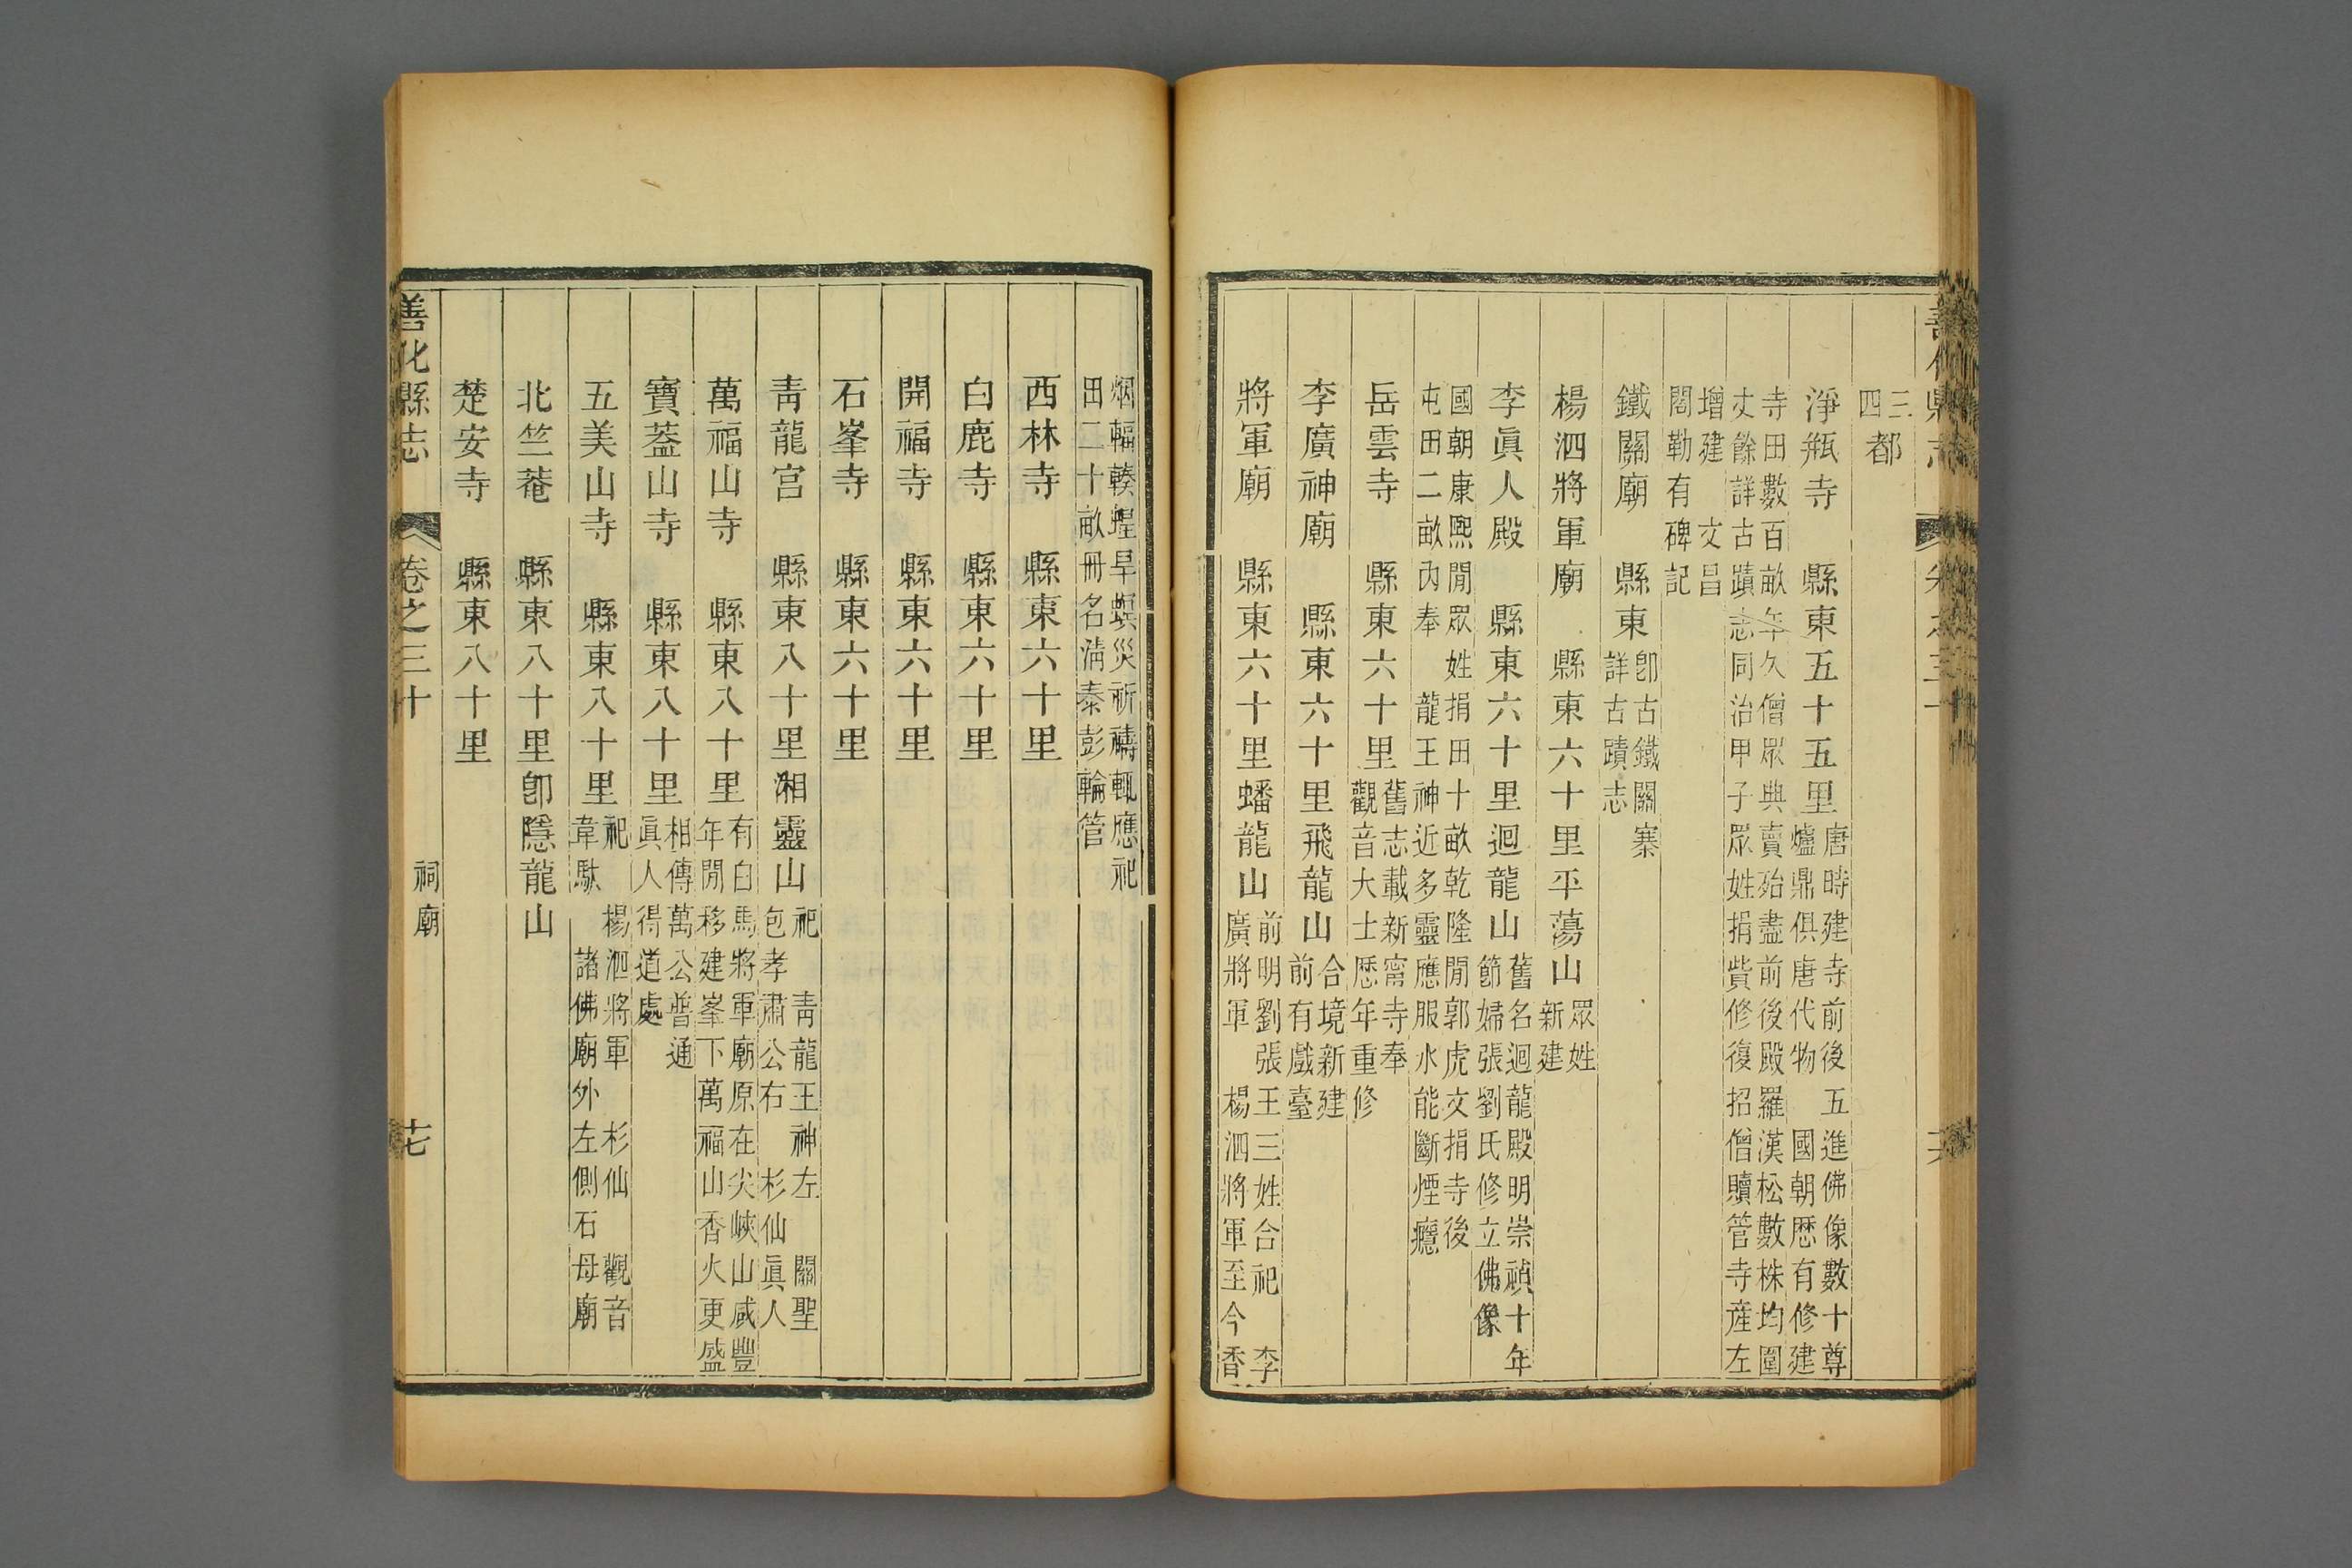 三四都
淨瓶寺　縣東五十五里
唐時建寺前後五進佛像數十尊
爐鼎俱唐代物　國朝歷有修建
寺田數百畝年久僧眾典賣殆盡前後殿羅漢松數株均圍
丈餘詳古蹟志同治甲子眾姓捐貲修復招僧贖管寺產左
增建　文昌
閣勒有碑記
鐵關廟　縣東
卽古鐵關寨
詳古蹟志
楊泗將軍廟　縣東六十里平蕩山
眾姓
新建
李眞人殿　縣東六十里迴龍山
舊名迴龍殿明崇禎十年
節婦張劉氏修立佛像
國朝康熙閒眾姓捐田十畝乾隆閒郭虎文捐寺後
屯田二畝內奉　龍王神近多靈應服水能斷煙癮
岳雲寺　縣東六十里
舊志載新甯寺奉
觀音大士歷年重修
李廣神廟　縣東六十里飛龍山
合境新建
前有戲臺
將軍廟　縣東六十里蟠龍山
前明劉張王三姓合祀　李
廣將軍　楊泗將軍至今香
善化縣志　卷之三十　祠廟　十七
烟輻輳蝗旱螟災祈禱輒應祀
田二十畝冊名淸泰彭輪管
西林寺　縣東六十里
白鹿寺　縣東六十里
開福寺　縣東六十里
石峯寺　縣東六十里
靑龍宮　縣東八十里湘靈山
祀　靑龍王神左　關聖
包孝肅公右　杉仙眞人
萬福山寺　縣東八十里
有白馬將軍廟原在尖峽山咸豐
年閒移建峯下萬福山香火更盛
寶蓋山寺　縣東八十里
相傳萬公普通
眞人得道處
五美山寺　縣東八十里
祀　楊泗將軍　杉仙　觀音
韋馱　諸佛廟外左側石母廟
北竺菴　縣東八十里卽隱龍山
楚安寺　縣東八十里